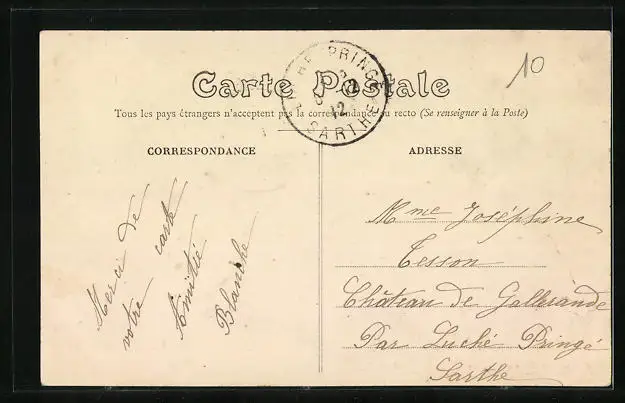 Carte Postale
Tous les pays étrangers n'acceptent pas la correspondance au recto (Se renseigner à la Poste)
LUCHÉ PRINGÉ
12
SARTHE
10
CORRESPONDANCE
Merci de
votre carte
Amitié
Blanche
ADRESSE
Mme Joséphine
Tesson
Château de Gallerande
Par Luché Pringé
Sarthe